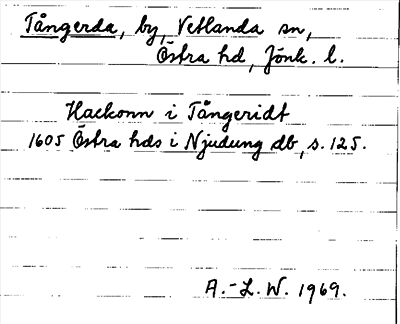 Tångerda, by, Vetlanda sn,
Östra hd, Jönk. l.
Hackonn i Tångeridt
1605 Östra hds i Njudung db, s. 125.
A.-L. W. 1969.